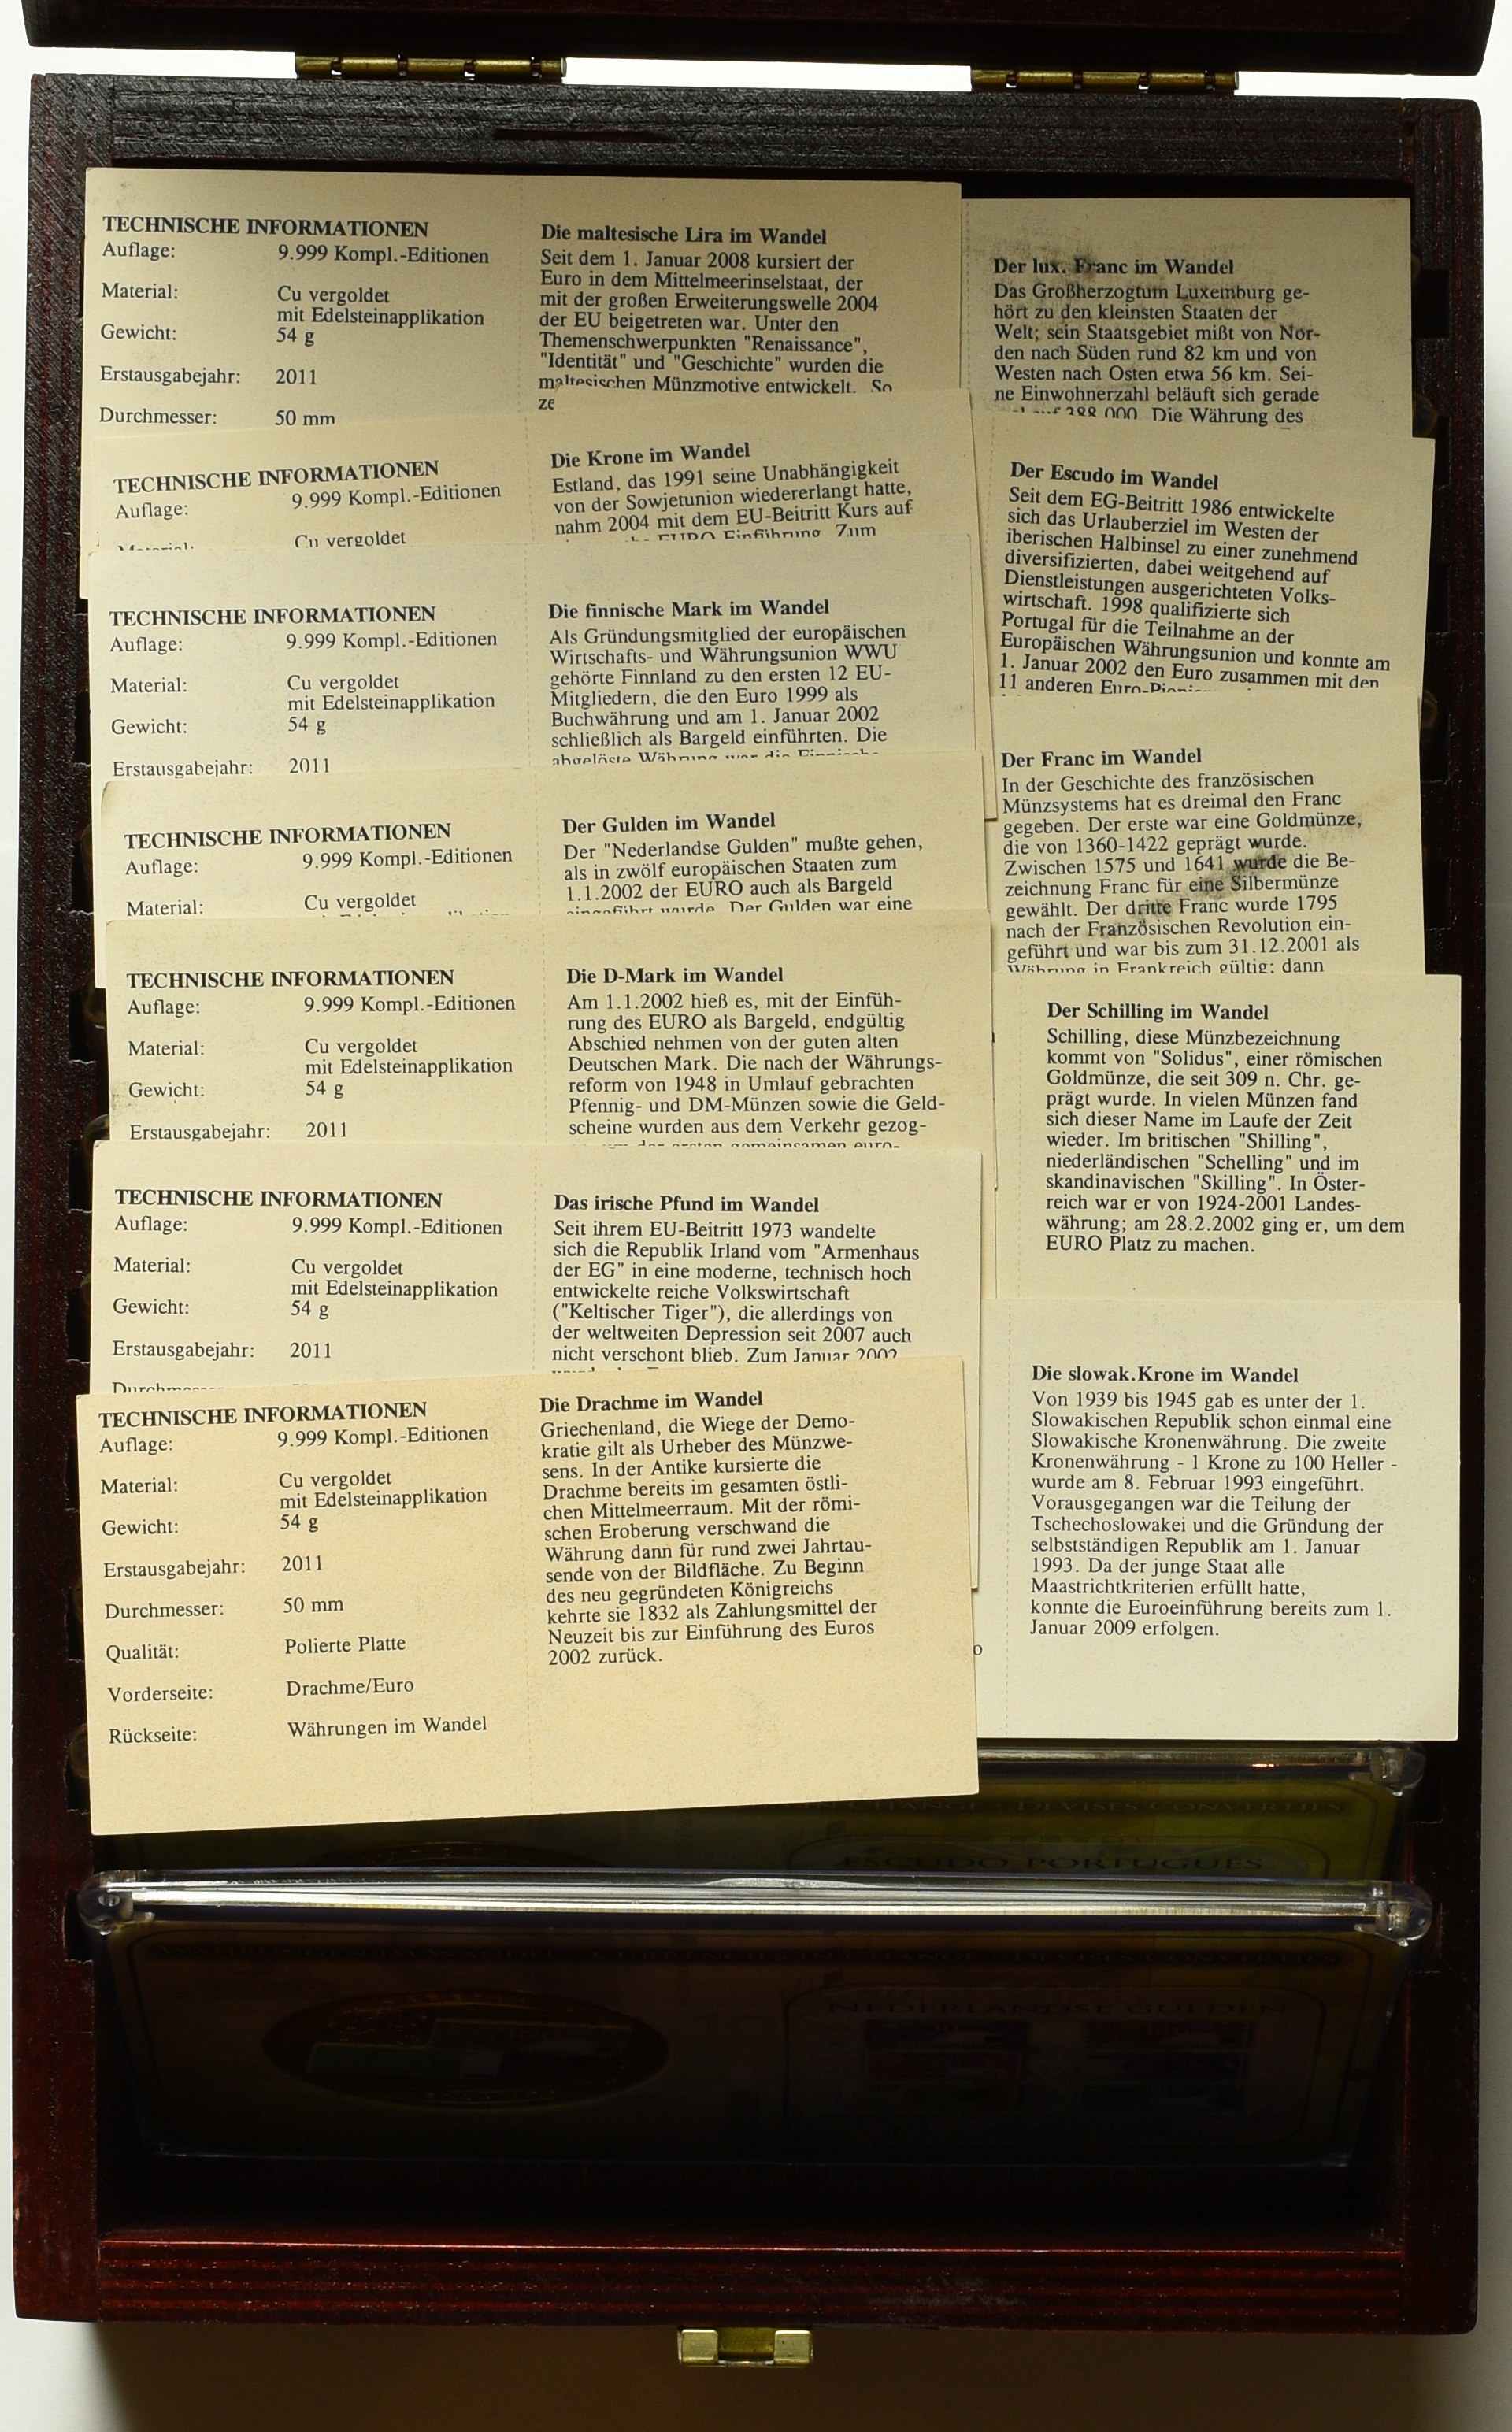 TECHNISCHE INFORMATIONEN
Auflage: 9.999 Kompl.-Editionen
Material: Cu vergoldet
mit Edelsteinapplikation
Gewicht: 54 g
Erstausgabejahr: 2011
Durchmesser: 50 mm
Die maltesische Lira im Wandel
Seit dem 1. Januar 2008 kursiert der
Euro in dem Mittelmeerinselstaat, der
mit der großen Erweiterungswelle 2004
der EU beigetreten war. Unter den
Themenschwerpunkten "Renaissance",
"Identität" und "Geschichte" wurden die
maltesischen Münzmotive entwickelt. So
ze
TECHNISCHE INFORMATIONEN
Auflage: 9.999 Kompl.-Editionen
Material: Cu vergoldet
Die Krone im Wandel
Estland, das 1991 seine Unabhängigkeit
von der Sowjetunion wiedererlangt hatte,
nahm 2004 mit dem EU-Beitritt Kurs auf
EURO Einführung. Zum
TECHNISCHE INFORMATIONEN
Auflage: 9.999 Kompl.-Editionen
Material: Cu vergoldet
mit Edelsteinapplikation
Gewicht: 54 g
Erstausgabejahr: 2011
Die finnische Mark im Wandel
Als Gründungsmitglied der europäischen
Wirtschafts- und Währungsunion WWU
gehörte Finnland zu den ersten 12 EU-
Mitgliedern, die den Euro 1999 als
Buchwährung und am 1. Januar 2002
schließlich als Bargeld einführten. Die
abgelöste Währung war die Finnische
TECHNISCHE INFORMATIONEN
Auflage: 9.999 Kompl.-Editionen
Material: Cu vergoldet
Der Gulden im Wandel
Der "Nederlandse Gulden" mußte gehen,
als in zwölf europäischen Staaten zum
1.1.2002 der EURO auch als Bargeld
eingeführt wurde. Der Gulden war eine
TECHNISCHE INFORMATIONEN
Auflage: 9.999 Kompl.-Editionen
Material: Cu vergoldet
mit Edelsteinapplikation
Gewicht: 54 g
Erstausgabejahr: 2011
Die D-Mark im Wandel
Am 1.1.2002 hieß es, mit der Einfüh-
rung des EURO als Bargeld, endgültig
Abschied nehmen von der guten alten
Deutschen Mark. Die nach der Währungs-
reform von 1948 in Umlauf gebrachten
Pfennig- und DM-Münzen sowie die Geld-
scheine wurden aus dem Verkehr gezog-
um der ersten gemeinsamen euro-
TECHNISCHE INFORMATIONEN
Auflage: 9.999 Kompl.-Editionen
Material: Cu vergoldet
mit Edelsteinapplikation
Gewicht: 54 g
Erstausgabejahr: 2011
Das irische Pfund im Wandel
Seit ihrem EU-Beitritt 1973 wandelte
sich die Republik Irland vom "Armenhaus
der EG" in eine moderne, technisch hoch
entwickelte reiche Volkswirtschaft
("Keltischer Tiger"), die allerdings von
der weltweiten Depression seit 2007 auch
nicht verschont blieb. Zum Januar 2002
TECHNISCHE INFORMATIONEN
Auflage: 9.999 Kompl.-Editionen
Material: Cu vergoldet
mit Edelsteinapplikation
Gewicht: 54 g
Erstausgabejahr: 2011
Durchmesser: 50 mm
Qualität: Polierte Platte
Vorderseite: Drachme/Euro
Rückseite: Währungen im Wandel
Die Drachme im Wandel
Griechenland, die Wiege der Demo-
kratie gilt als Urheber des Münzwe-
sens. In der Antike kursierte die
Drachme bereits im gesamten östli-
chen Mittelmeerraum. Mit der römi-
schen Eroberung verschwand die
Währung dann für rund zwei Jahrtau-
sende von der Bildfläche. Zu Beginn
des neu gegründeten Königreichs
kehrte sie 1832 als Zahlungsmittel der
Neuzeit bis zur Einführung des Euros
2002 zurück.
Der lux. Franc im Wandel
Das Großherzogtum Luxemburg ge-
hört zu den kleinsten Staaten der
Welt; sein Staatsgebiet mißt von Nor-
den nach Süden rund 82 km und von
Westen nach Osten etwa 56 km. Sei-
ne Einwohnerzahl beläuft sich gerade
auf 388.000. Die Währung des
Der Escudo im Wandel
Seit dem EG-Beitritt 1986 entwickelte
sich das Urlauberziel im Westen der
iberischen Halbinsel zu einer zunehmend
diversifizierten, dabei weitgehend auf
Dienstleistungen ausgerichteten Volks-
wirtschaft. 1998 qualifizierte sich
Portugal für die Teilnahme an der
Europäischen Währungsunion und konnte am
1. Januar 2002 den Euro zusammen mit den
11 anderen Euro-
Der Franc im Wandel
In der Geschichte des französischen
Münzsystems hat es dreimal den Franc
gegeben. Der erste war eine Goldmünze,
die von 1360-1422 geprägt wurde.
Zwischen 1575 und 1641 wurde die Be-
zeichnung Franc für eine Silbermünze
gewählt. Der dritte Franc wurde 1795
nach der Französischen Revolution ein-
geführt und war bis zum 31.12.2001 als
Währung in Frankreich gültig; dann
Der Schilling im Wandel
Schilling, diese Münzbezeichnung
kommt von "Solidus", einer römischen
Goldmünze, die seit 309 n. Chr. ge-
prägt wurde. In vielen Münzen fand
sich dieser Name im Laufe der Zeit
wieder. Im britischen "Shilling",
niederländischen "Schelling" und im
skandinavischen "Skilling". In Öster-
reich war er von 1924-2001 Landes-
währung; am 28.2.2002 ging er, um dem
EURO Platz zu machen.
Die slowak.Krone im Wandel
Von 1939 bis 1945 gab es unter der 1.
Slowakischen Republik schon einmal eine
Slowakische Kronenwährung. Die zweite
Kronenwährung - 1 Krone zu 100 Heller -
wurde am 8. Februar 1993 eingeführt.
Vorausgegangen war die Teilung der
Tschechoslowakei und die Gründung der
selbstständigen Republik am 1. Januar
1993. Da der junge Staat alle
Maastrichtkriterien erfüllt hatte,
konnte die Euroeinführung bereits zum 1.
Januar 2009 erfolgen.
o
IN CHANGE · DEVISES CONVERTIES
ESCUDO PORTUGUÊS
WÄHRUNGEN IM WANDEL · CURRENCIES IN CHANGE · DEVISES CONVERTIES
NEDERLANDSE GULDEN